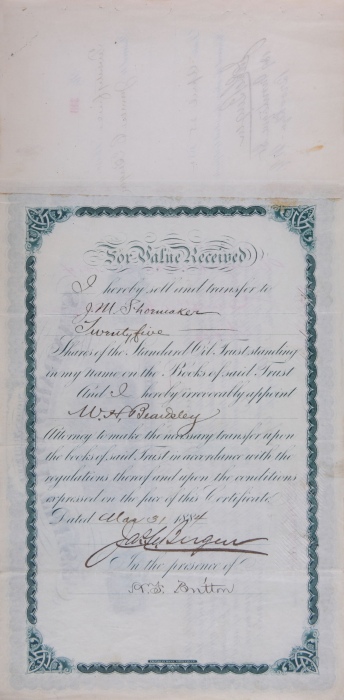 For Value Received
I hereby sell and transfer to
J.M. Shoemaker
Twenty five
Shares of the Standard Oil Trust standing
in my name on the Books of said Trust
And I hereby irrevocably appoint
W. H. Beardsley
Attorney to make the necessary transfer upon
the books of said Trust in accordance with the
regulations thereof and upon the conditions
expressed on the face of this Certificate
Dated 31 1884
In the presence of
Britton